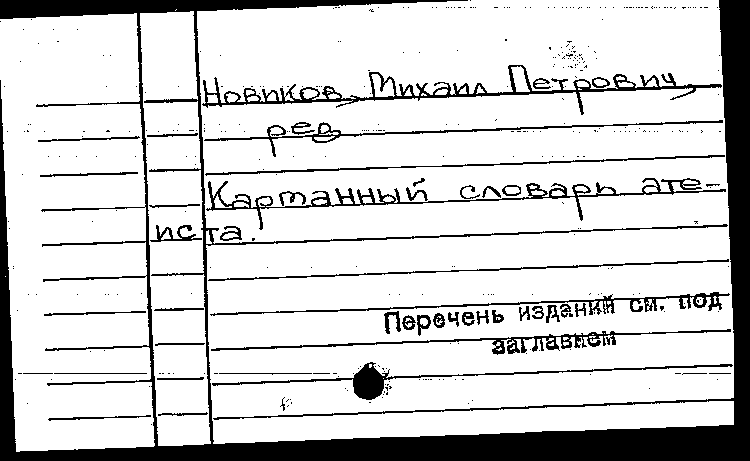 Новиков, Михаил Петрович,
ред.
Картанный словарь ате-
иста.
Перечень изданий см. под
заглавием